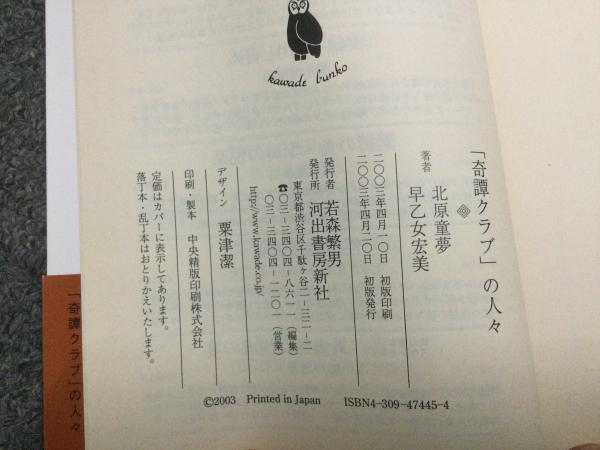 kawade bunko
「奇譚クラブ」の人々
著者　北原童夢
早乙女宏美
二〇〇三年四月一〇日　初版印刷
二〇〇三年四月二〇日　初版発行
発行者　若森繁男
発行所　河出書房新社
東京都渋谷区千駄ヶ谷二-三二-二
☎〇三-三四〇四-八六一一（編集）
〇三-三四〇四-一二〇一（営業）
http://www.kawade.co.jp/
デザイン　粟津潔
印刷・製本　中央精版印刷株式会社
定価はカバーに表示してあります。
落丁本・乱丁本はおとりかえいたします。
©2003 Printed in Japan ISBN4-309-47445-4
「奇譚クラブ」の人々